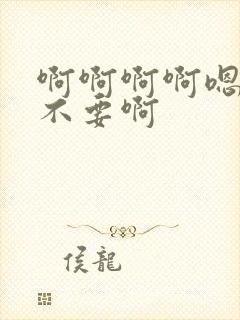 啊啊啊啊嗯
不要啊
侯龍